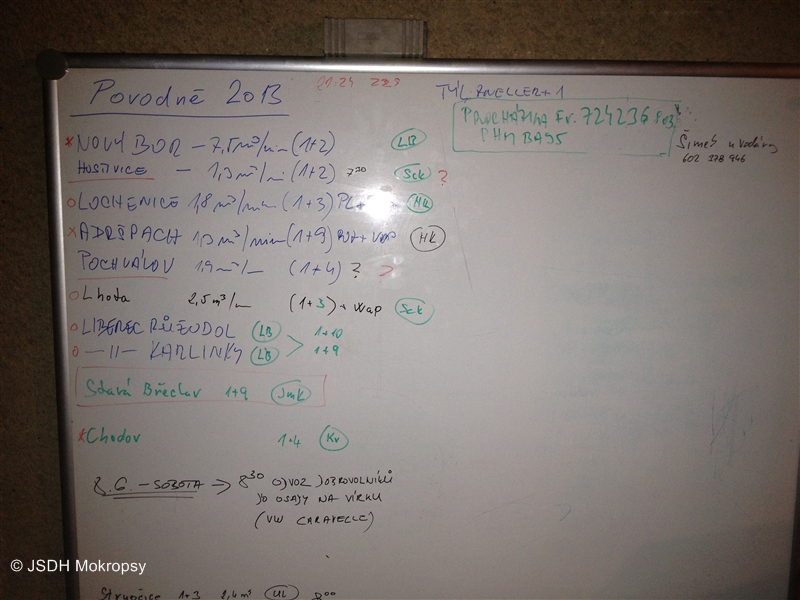 Povodně 2013
NOVÝ BOR – 7,5 m³/min (1+2) LB
HOSTIVICE – 1,3 m³/ (1+2) 7³⁰ Sck ?
LOCHENICE 1,8 m³/min (1+3) HK
ADRŠPACH m³/min (1+9) HK
POCHVALOV 1,9 m³/ (1+4) ? ?
Lhota 2,5 m³/m (1+3) + Wap Sck
LIBEREC RŮŽODOL LB 1+10
–11– KARLINKY LB 1+9
Stará Břeclav 1+9 JmK
Chodov 1+4 KV
8.6. – SOBOTA → 8³⁰ ODVOZ DOBROVOLNÍKŮ
DO OSADY NA VÍRKU
(VW CARAVELLE)
1+3 2,4 m³ UL 8⁰⁰
TÝL. KNELLER + 1
PROCHÁZKA Fr. 724236
PHM BA95
602 378 946
© JSDH Mokropsy